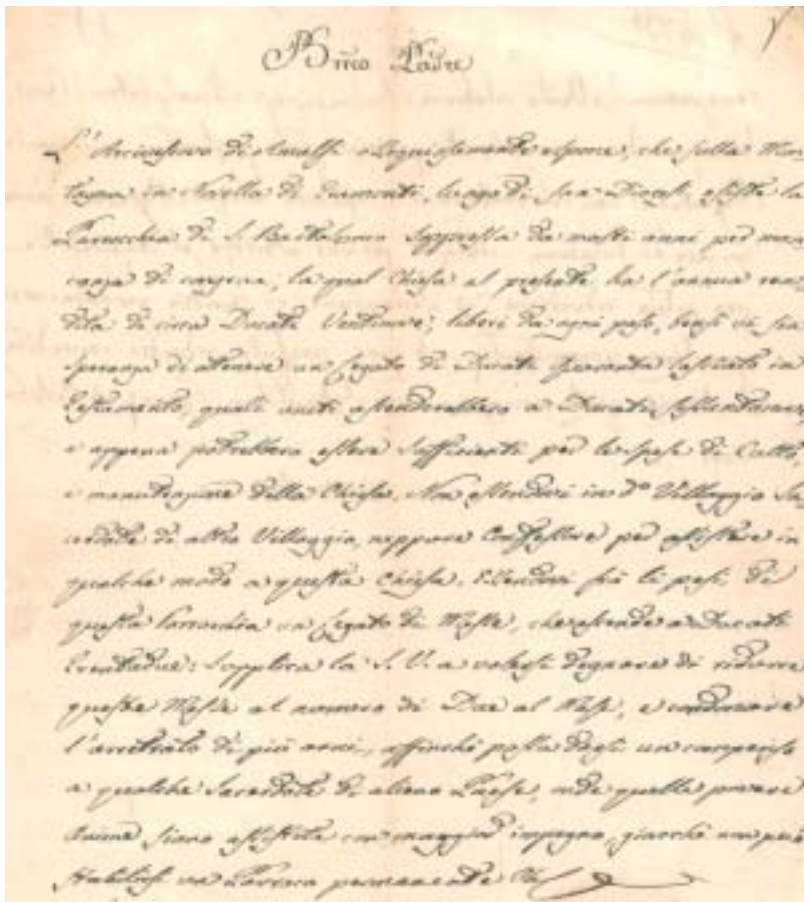 B.mo Padre
L'Arcivescovo di Amalfi ossequiosamente espone, che sulla Mon
tagna in Novella di Tramonti, luogo di sua Diocesi, esiste la
Parrocchia di S. Bartolomeo soppressa da molti anni per man
canza di congrua, la qual Chiesa al presente ha l'annua ren
dita di circa Ducati Ventinove; liberi da ogni peso, bensì vi sia
speranza di ottenere un Legato di Ducati Quaranta lasciato in
Testamento, quali uniti ascenderebbero a Ducati
e appena potrebbero essere sufficienti per le spese di Culto,
e manutenzione della Chiesa. Non essendovi in d.o Villaggio Sa
cerdote di altro Villaggio, neppure Confessore per assistere in
qualche modo a questa Chiesa. Essendovi frà li pesi di
questa Parrocchia un Legato di Messe, che ascende a Ducati
Trentadue: Supplica la S. V. a volersi degnare di ridurre
queste Messe al numero di Due al Mese, e condonare
l'arretrato di più anni, affinchè possa darsi un compenso
a qualche Sacerdote di alieno Paese, onde quelle povere
Anime siano assistite con maggior impegno, giacchè non può
stabilirsi un Parroco permanente Che